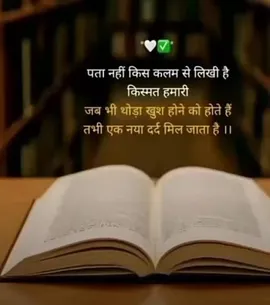 पता नहीं किस कलम से लिखी है
किस्मत हमारी
जब भी थोड़ा खुश होने को होते हैं
तभी एक नया दर्द मिल जाता है ।।